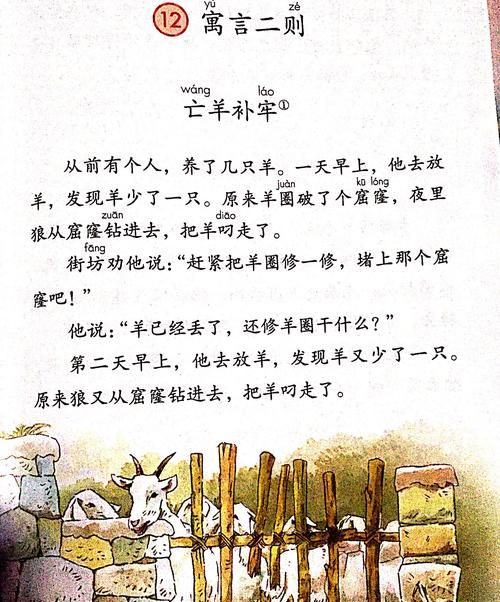 yù zé
12 寓言二则
wáng láo
亡羊补牢①
从前有个人，养了几只羊。一天早上，他去放
juàn kū lóng
羊，发现羊少了一只。原来羊圈破了个窟窿，夜里
zuān diāo
狼从窟窿钻进去，把羊叼走了。
fāng
街坊劝他说：“赶紧把羊圈修一修，堵上那个窟
窿吧！”
他说：“羊已经丢了，还修羊圈干什么？”
第二天早上，他去放羊，发现羊又少了一只。
原来狼又从窟窿钻进去，把羊叼走了。